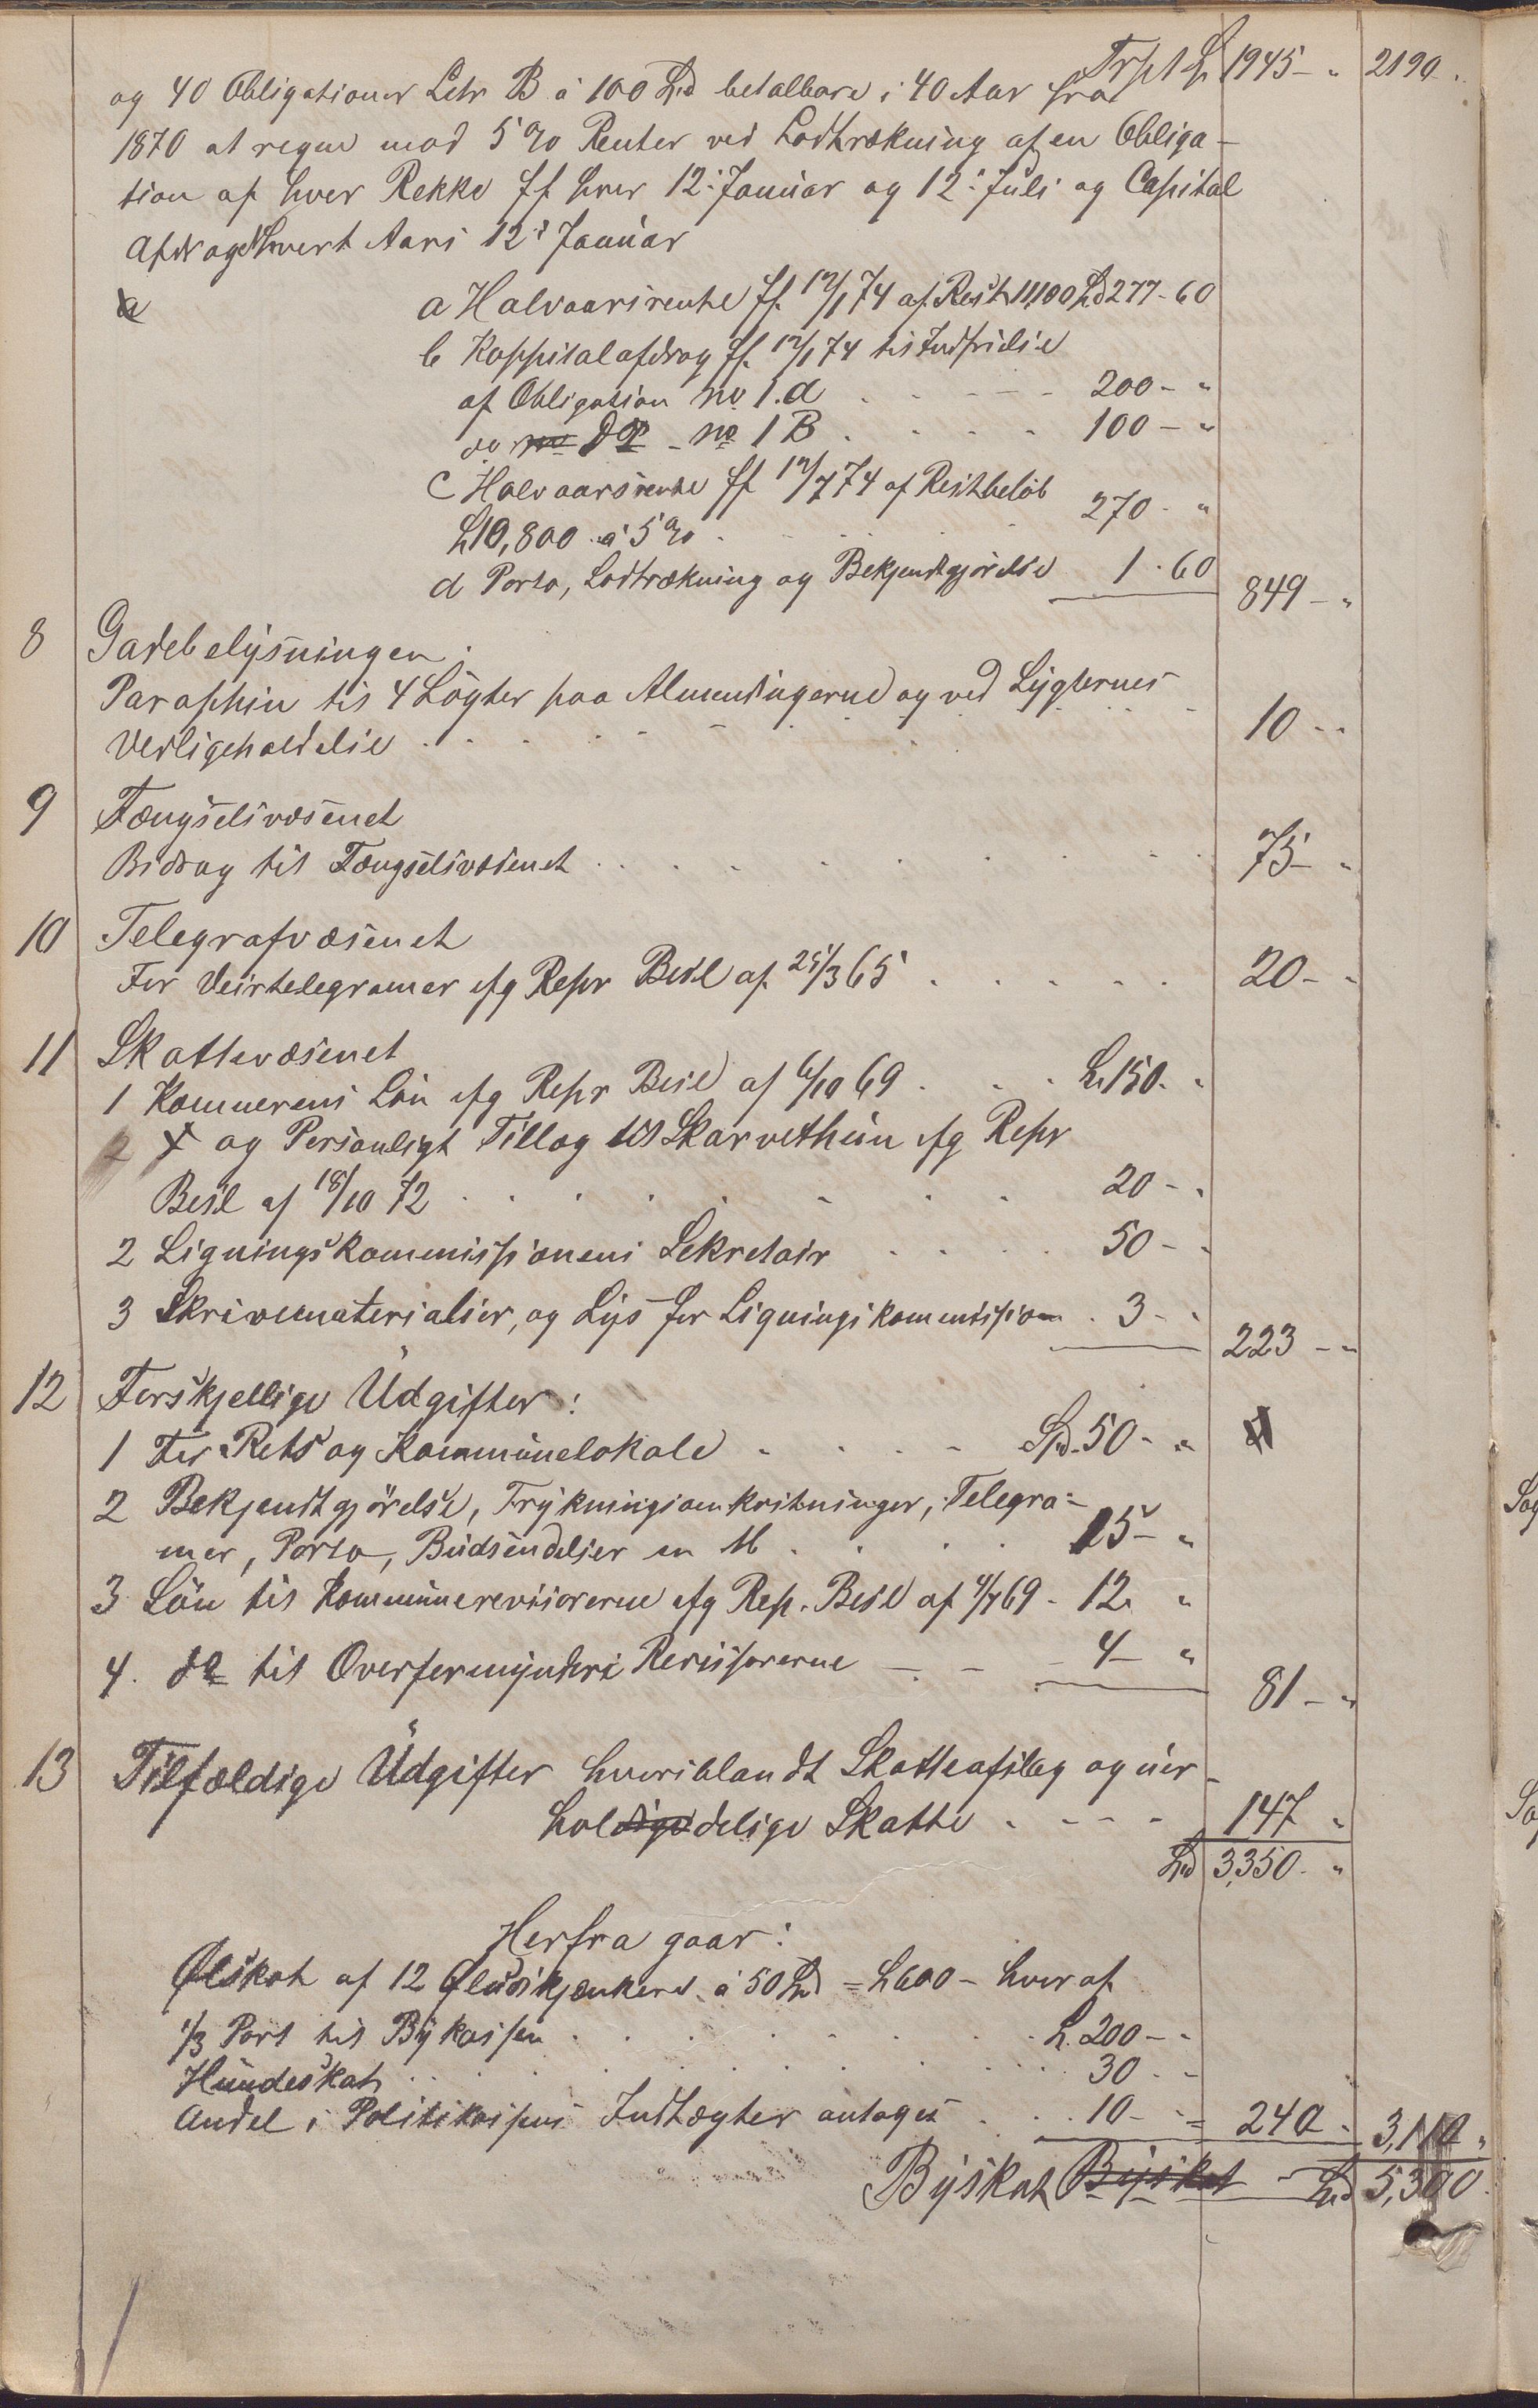 Trpt Sp 1945 - " 2190 "
og 40 Obligationer Letr B á 100 Spd betalbare i 40 Aar fra
1870 at regne mod 5 % Renter ved Lodtrækning af en Obliga-
tion af hver Rekke ff hver 12: Januar og 12: Juli og Capital
afdraget hvert Aars 12: Januar
a Halvaarsrente ff. 12/1 74 af Rest 11,100 Spd 277 - 60
b Kappitalafdrag ff. 12/1 74 til Indfrielse
af Obligation No 1. A . . . . 200 - "
do No do - No 1 B . . . . 100 - "
c Halvaarsrente ff 12/7 74 af Restbeløb
Sp 10,800 á 5 % . . . 270 - "
d Porto, Lodtrækning og Bekjendtgjørelse 1 - 60 849 - "
8 Gadebelysningen.
Paraphin til 4 Løgter paa Almendingerne og ved Lygternes
Vedligeholdelse . . . . . 10 - "
9 Fængselsvæsenet
Bidrag til Fængselsvæsenet . . . . . 75 - "
10 Telegrafvæsenet
For Veirtelegramer efg Repr Besl af 25/3 65 . . . . . 20 - "
11 Skattevæsenet
1 Kæmnerens Løn efg Repr Besl af 6/10 69 . . . Sp 150 - "
og Personligt Tillæg til Skarvethun efg Repr
Besl af 18/10 72 . . . . . 20 - "
2 Ligningskommissionens Sekretair . . . . 50 - "
3 Skrivematerialier, og Lys for Ligningskommission . 3 - " 223 - "
12 Forskjellige Udgifter:
1 For Rets og Kommunelokale . . . - Spd. 50 - "
2 Bekjendtgjørelse, Trykningsomkostninger, Telegra-
mer, Porto, Budsendelser en M . . . . 15 - "
3 Løn til Kommunerevisorerne efg Rep. Besl af 4/7 69 - 12 "
4. do til Overformynderi Revisorerne - - - 4 - " 81 - "
13 Tilfældige Udgifter hvoriblandt Skatteafslag og uer-
holdelige Skatte . - - - 147 "
Spd 3,350 - "
Herfra gaar:
Ølskat af 12 Øludskjænkere á 50 Spd = Sp 600 - hver af
1/3 Part til Bykassen . . . . Sp. 200 - "
Hundeskat . . . . . 30 - "
Andel i Politikassens Indtægter antages . . . 10 - " = 240 - 3,110 "
Byskat Byskat - Spd 5,300